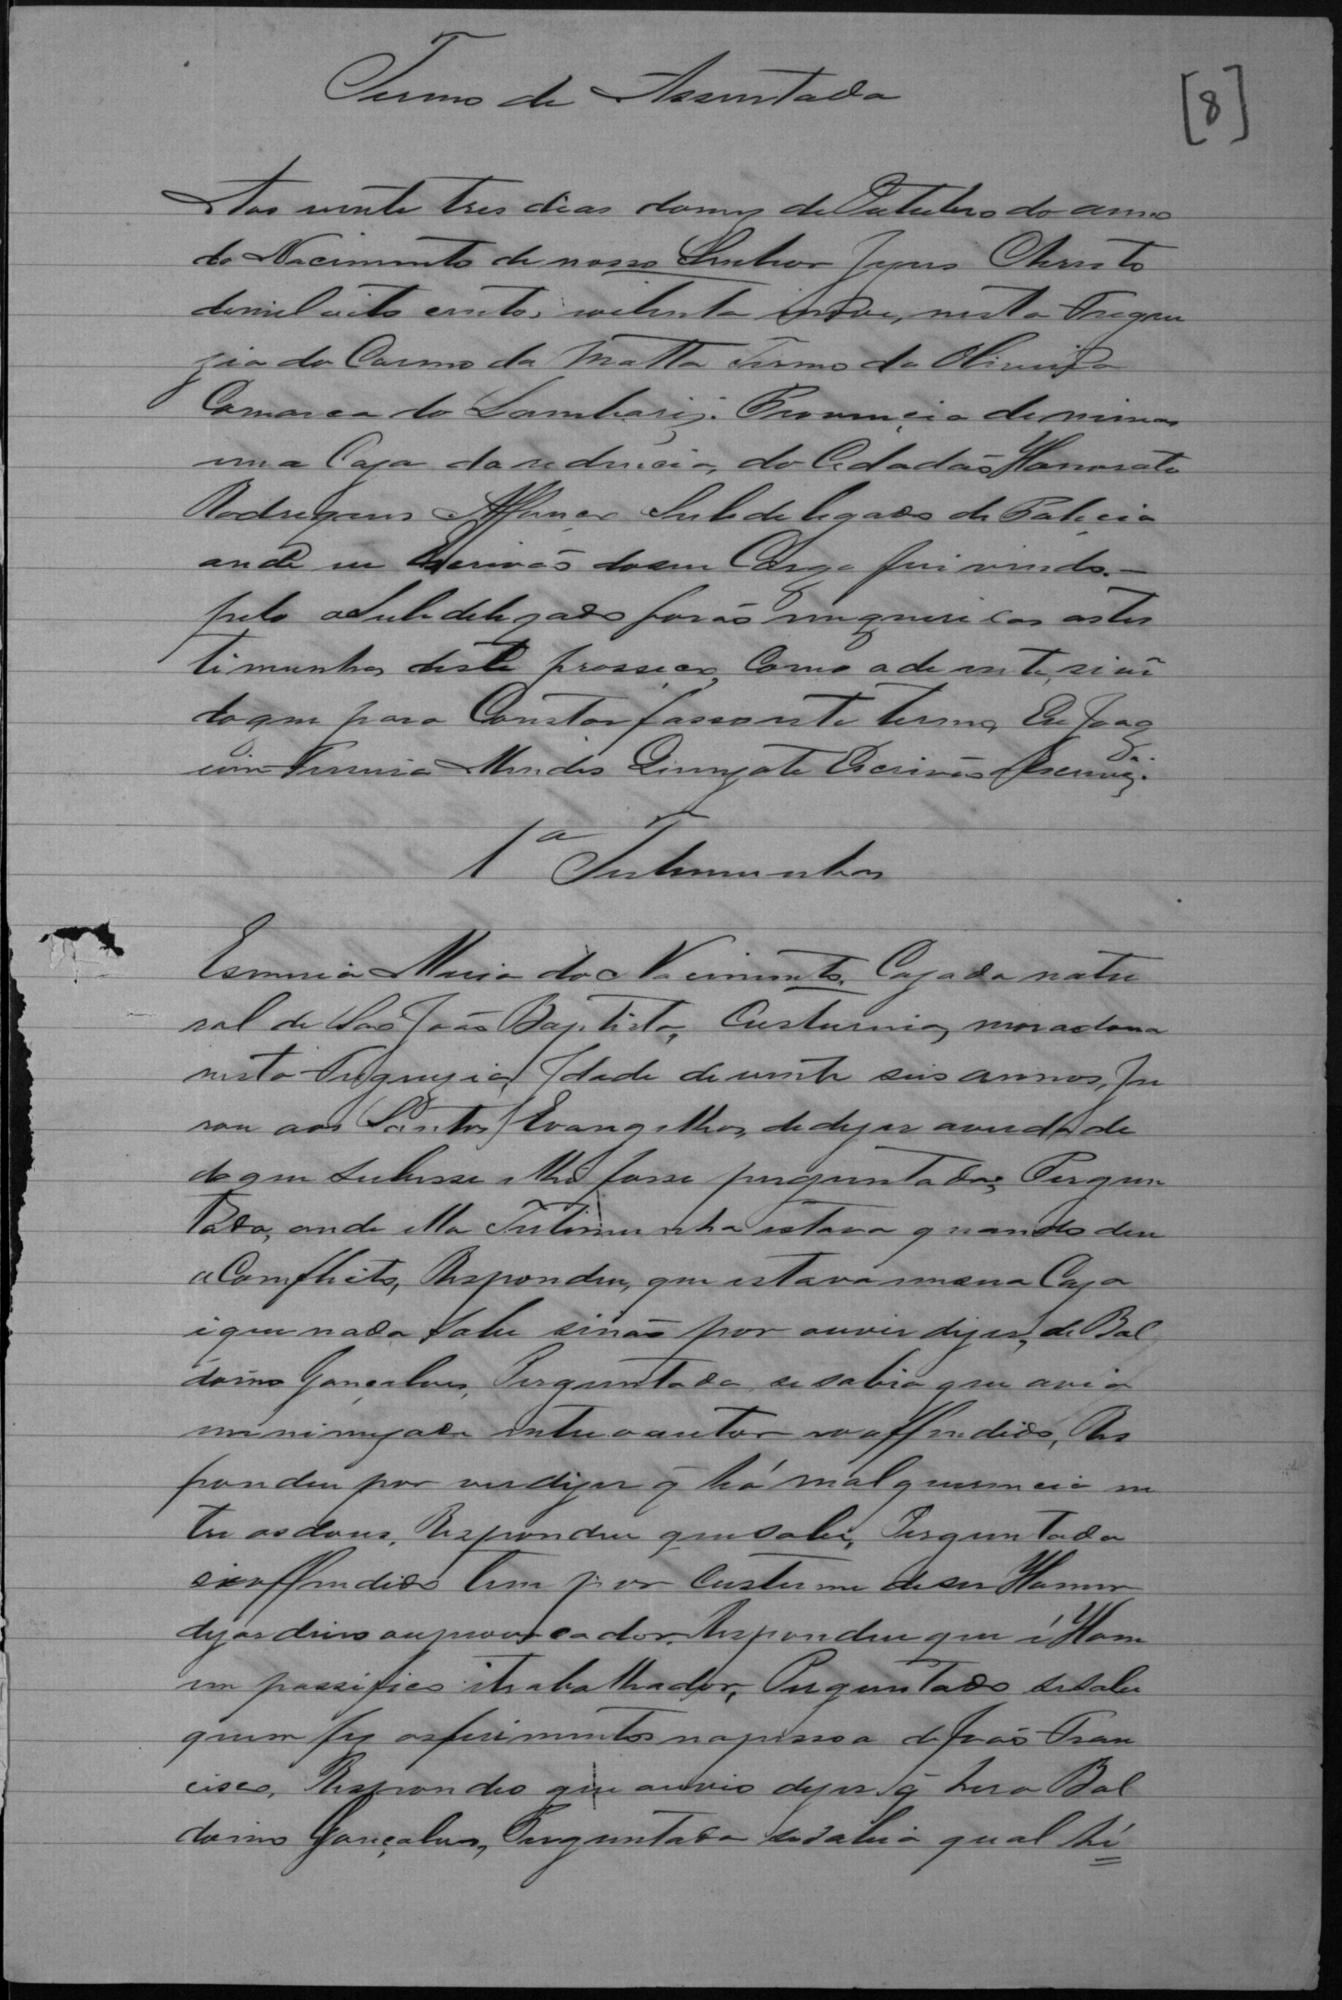 Termo de Assentada
[8]
Aos vinte tres dias do mez de Outubro do anno
do Nacimento de nosso Senhor Jezus Christo
de mil oito centos oitenta inove, nesta Fregue
zia do Carmo da Matta Termo da Oliveira
Comarca do Lambary. Provincia de minas
em a Caza da redencia, do Cidadão Honorato
Rodrigues Affonço Subdelegado de Policia
onde eu Escrivão doseu Cargo fui vindo. —
pelo oSubdelegado forão inqueridas astes
timunhas deste prosseço, Como adeante, sivê
doque para Constar fassoeste termo, Eu Joaq
uim Ferreira Mendes Escrivão Escrevy.
1ª Testemunha
Esmeria Maria do Nacimento, Cazada natu
ral de São João Baptista, Custureira, moradora
nesta Freguezia, Idade de vinte seis annos, Ju
rou aos Santos Evangelhos, dedizer averdade
do que Subesse elhe fosse perguntado; Pergun
tada, onde ella Testimunha estava quando deu
o Comflicto, Respondeu, que estava em sua Caza
i que nada Sabe sinão por ouvir dizer, de Bal
doino Gonçalves, Perguntada se sabia que avia
inimizade entre o autor eo offendido, Res
pondeu por uvir dizer q̃ há malquerencia en
tre os dous, Respondeu que sabe, Perguntada
si o offendido tem por Custume de ser Homem
dezordeiro ou provocador. Respondeu que é Hom
em passifico i trabalhador, Perguntado se sabe
quem fez os ferimentos na pessoa de João Fran
cisco, Respondeo que ouvio dizer q̃ hera Bal
doino Gonçalves, Perguntada se sabia qual hé